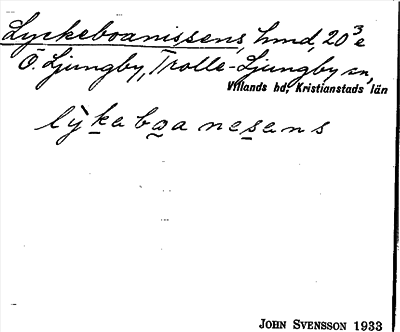 Lyckeboanissens, hmd, 20³e
Ö. Ljungby, Trolle-Ljungby sn,
Villands hd, Kristianstads län
lỳkeboanesens
JOHN SVENSSON 1933